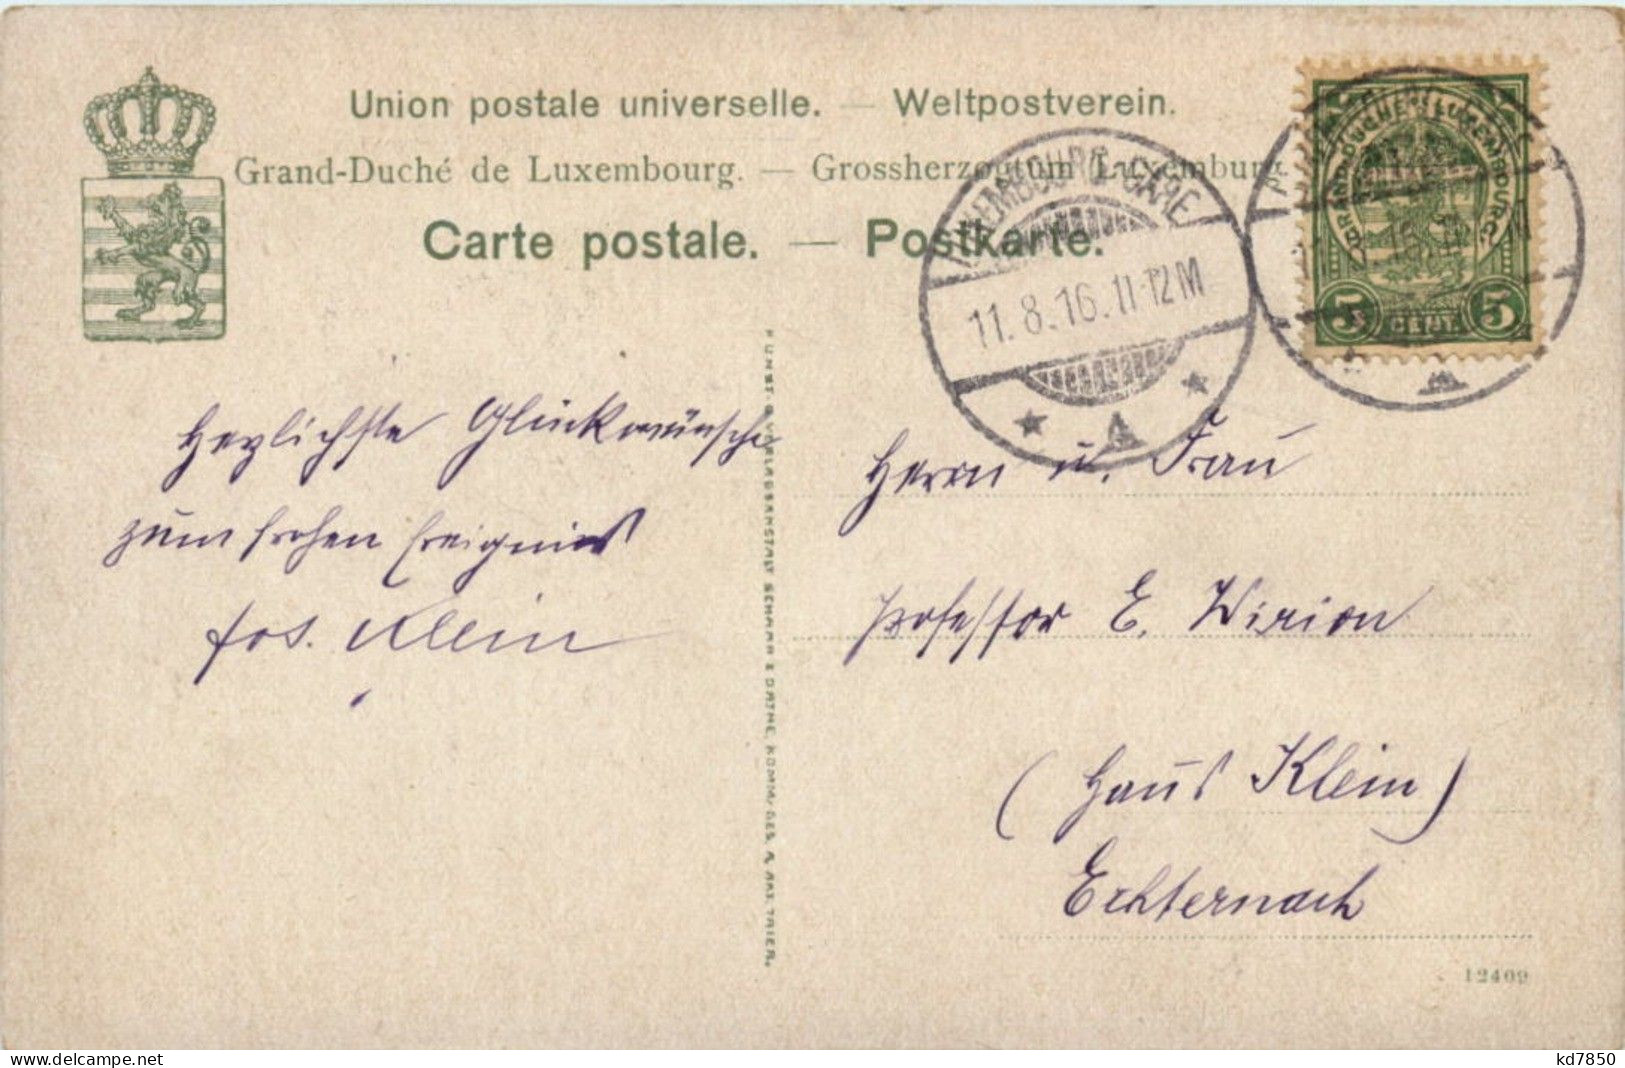 Union postale universelle. — Weltpostverein.
Grand-Duché de Luxembourg. — Grossherzogtum Luxemburg
Carte postale. — Postkarte.
LUXEMBOURG-GARE
11.8.16.11-12M
GRAND-DUCHÉ DE LUXEMBOURG
5 CENT. 5
Herzlichste Glückwünsche
zum frohen Ereignis
Jos. Klein
KUNST- & VERLAGSANSTALT SCHAAR & DATHE, KOMM.-GES. A. AKT. TRIER.
Herrn u. Frau
Professor E. Wirion
(Haus Klein)
Echternach
12409
www.delcampe.net
kd7850